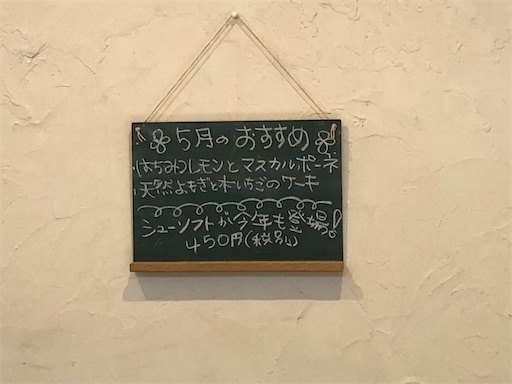 5月のおすすめ
・はちみつレモンとマスカルポーネ
・天然よもぎと木いちごのケーキ
シューソフトが今年も登場!
450円(税別)